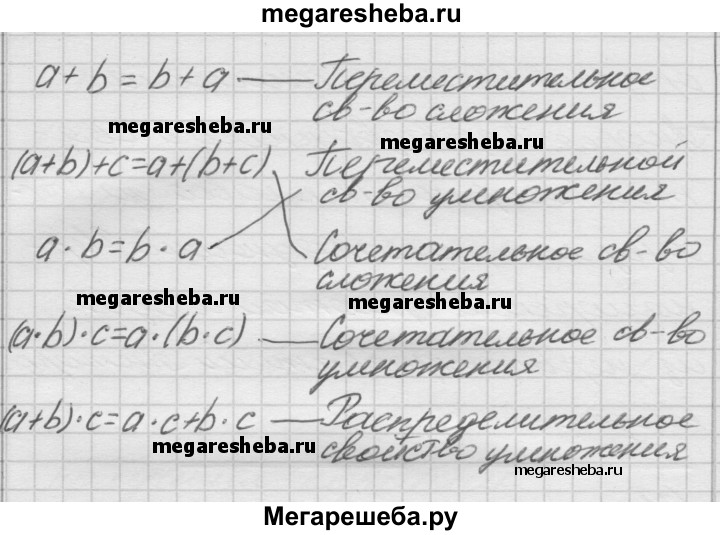 megaresheba.ru
a+b=b+a — Переместительное
св-во сложения
megaresheba.ru
megaresheba.ru
(a+b)+c=a+(b+c) Переместительной
св-во умножения
a·b=b·a Сочетательное св-во
сложения
megaresheba.ru
megaresheba.ru
(a·b)·c=a·(b·c) — Сочетательное св-во
умножения
(a+b)·c=a·c+b·c — Распределительное
megaresheba.ru
свойство умножения
megaresheba.ru
Мегарешеба.ру